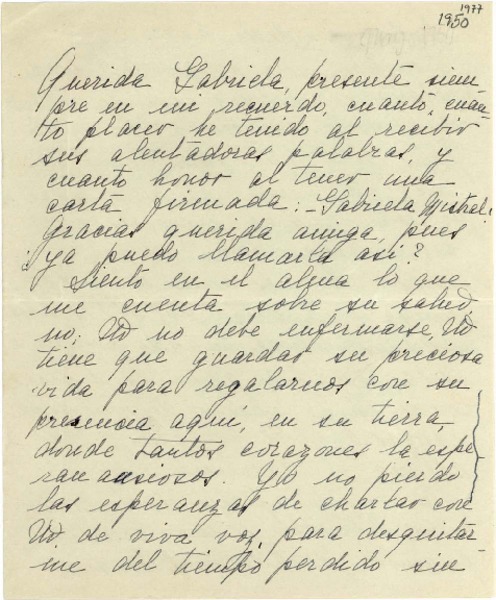 1977
1950
Querida Gabriela, presente siem-
pre en mi recuerdo, cuanto, cuan-
to placer he tenido al recibir
sus alentadoras palabras, y
cuanto honor al tener una
carta firmada: -Gabriela Mistral!
Gracias querida amiga, pues
¿ya puedo llamarla así?
Siento en el alma lo que
me cuenta sobre su salud,
no; Ud no debe enfermarse, Ud
tiene que guardar su preciosa
vida para regalarnos con su
presencia aquí, en su tierra,
donde tantos corazones la espe-
ran ansiosos. Yo no pierdo
las esperanzas de charlar con
Ud de viva voz, para desquitar-
me del tiempo perdido sin